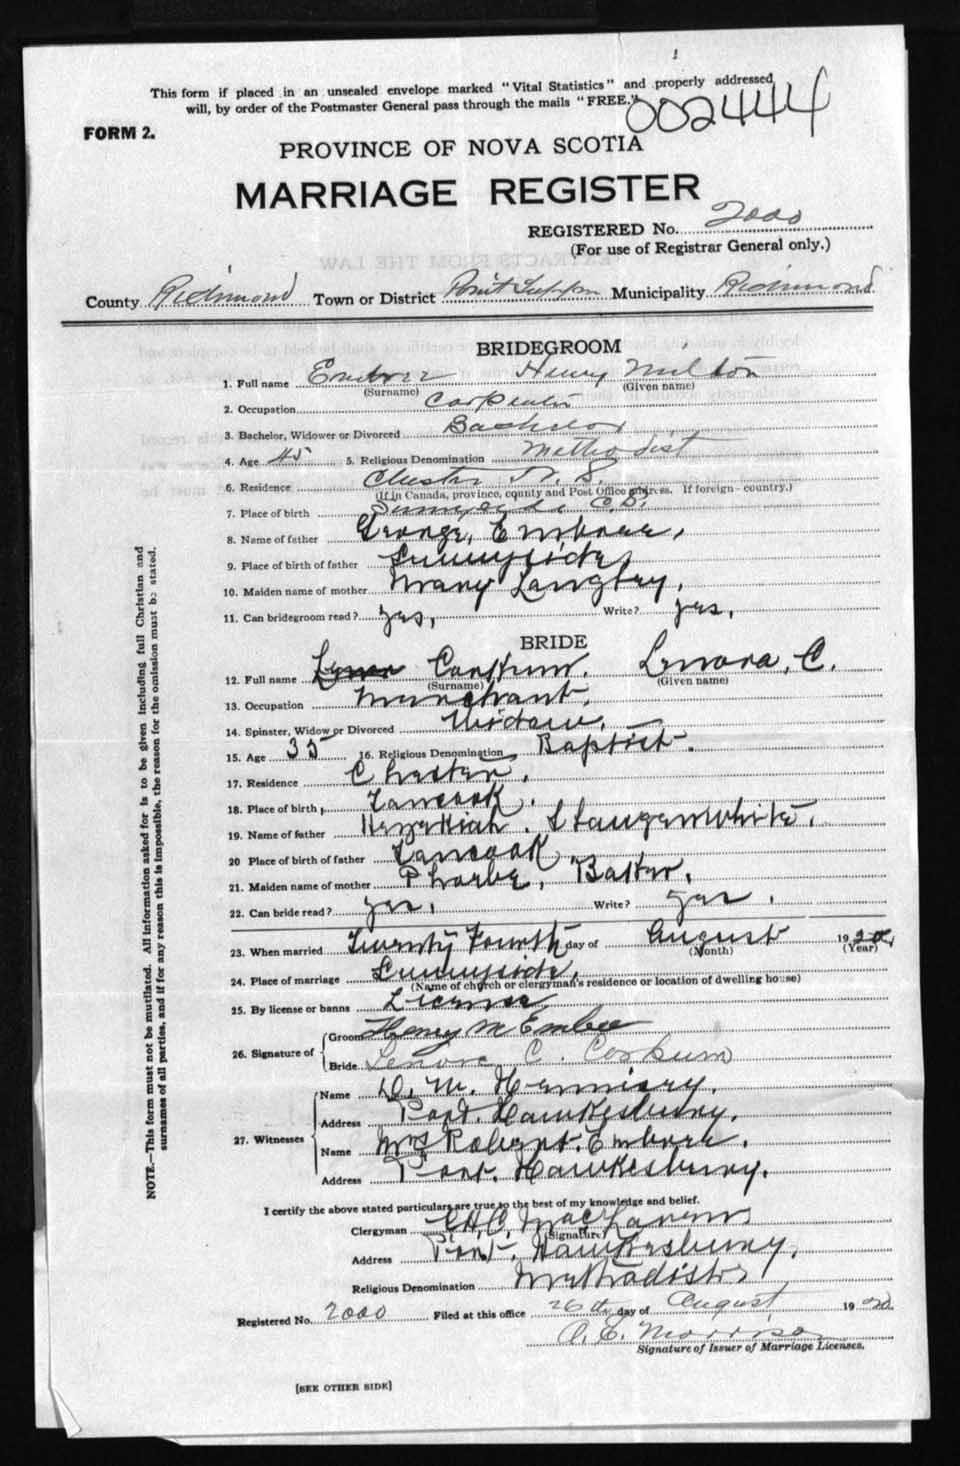 This form if placed in an unsealed envelope marked "Vital Statistics" and properly addressed
will, by order of the Postmaster General pass through the mails "FREE."
002444
FORM 2.
PROVINCE OF NOVA SCOTIA
MARRIAGE REGISTER
REGISTERED No. 2000
(For use of Registrar General only.)
County Richmond Town or District Point Tupper Municipality Richmond
BRIDEGROOM
1. Full name Embree Henry Milton
(Surname) (Given name)
2. Occupation Carpenter
3. Bachelor, Widower or Divorced Bachelor
4. Age 45 5. Religious Denomination Methodist
6. Residence Chester N.S.
(If in Canada, province, county and Post Office address. If foreign - country.)
7. Place of birth Sunnyside C.B.
8. Name of father George, Embree,
9. Place of birth of father Sunnyside,
10. Maiden name of mother Mary Langley,
11. Can bridegroom read? yes, Write? yes,
BRIDE
12. Full name Corkum. Lenora, C.
(Surname) (Given name)
13. Occupation Merchant,
14. Spinster, Widow or Divorced Widow,
15. Age 35 16. Religious Denomination Baptist.
17. Residence Chester,
18. Place of birth Tancook,
19. Name of father Hezekiah.
20 Place of birth of father Tancook
21. Maiden name of mother Phoebe, Baker,
22. Can bride read? yes, Write? yes.
23. When married Twenty Fourth day of August 1920,
(Month) (Year)
24. Place of marriage Sunnyside,
(Name of church or clergyman's residence or location of dwelling house)
25. By license or banns License
26. Signature of
Groom Henry M Embree
Bride Lenora C. Corkum
27. Witnesses
Name D. M. Hennisey,
Address Port. Hawkesbury,
Name Mrs Robert. Embree,
Address Port. Hawkesbury,
I certify the above stated particulars are true to the best of my knowledge and belief.
Clergyman MacLaren
(Signature)
Address Port, Hawkesbury,
Religious Denomination Methodist
Registered No. 2000 Filed at this office 26th day of August 1920.
Morrison
Signature of Issuer of Marriage Licenses.
[SEE OTHER SIDE]
NOTE.—This form must not be mutilated. All information asked for is to be given including full Christian and
surnames of all parties, and if for any reason this is impossible, the reason for the omission must be stated.